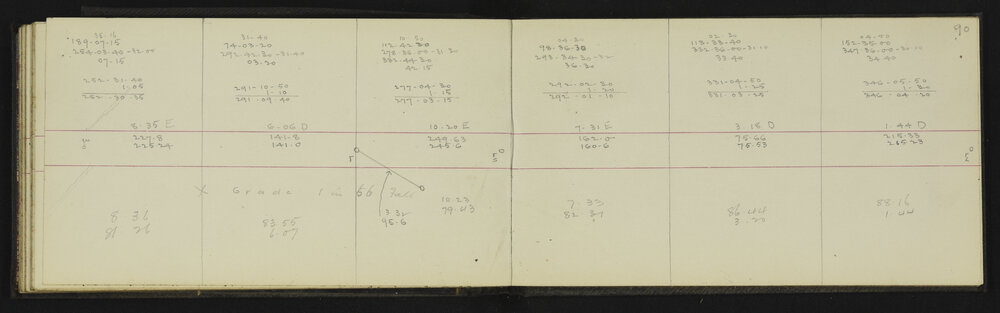 90
38.16
189-07-15
254-03-40-32.00
07.15
252-31-40
1.05
252-30-35
8.35 E
227.8
225.24
8 36
81 26
31-40
74-03-20
292-42-30-31-40
03.20
291-10-50
1-10
291.09.40
6.06 D
141-8
141.0
X Grade 1 in 66 Fall
83.55
6.07
10.50
112.42.30
278-36-00-31.30
332-44.30
42.15
277-04-30
1-15
277-03-15
10.20 E
249.63
245.6
3.32
95.6
10.23
79.43
04-30
98.36.30
293-34-30-32
36.30
292-02-30
1-20
292-01-10
7.31 E
162.0
160.6
7.33
82 37
02-30
113-33-40
332-36-00-31-10
33.40
331-04-50
1-25
331.03.25
3.18 D
75.66
75.53
86.44
3.20
04-50
152-35-00
347-36-00-30-10
34.40
346-05-50
1-30
346-04-20
1.44 D
215.33
215.23
88.16
1.44